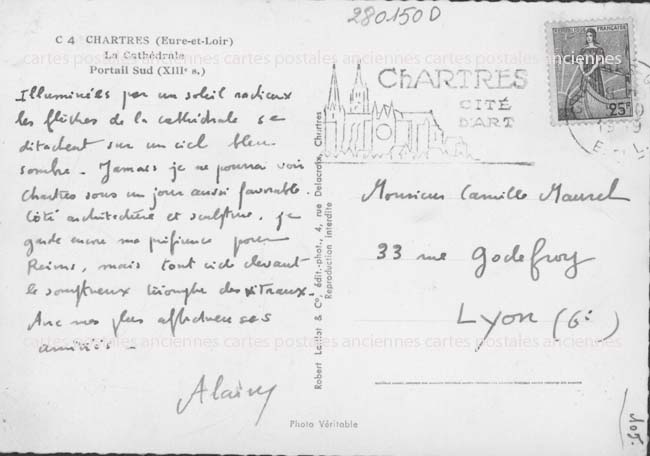 280150D
C 4 CHARTRES (Eure-et-Loir)
La Cathédrale
Portail Sud (XIIIe s.)
Illuminées par un soleil radieux
les flèches de la cathédrale se
détachent sur un ciel bleu
sombre. Jamais je ne pourrai voir
Chartres sous un jour aussi favorable.
Côté architecture et sculpture, je
garde encore ma préférence pour
Reims, mais tout cède devant
le somptueux triomphe des vitraux.
Avec mes plus affectueuses
amitiés -
Alain
Photo Véritable
Robert Laillat & Co, édit.-phot., 4, rue Delacroix, Chartres
Reproduction interdite
CHARTRES
CITÉ
D'ART
REPUBLIQUE FRANÇAISE
25F
E.-L.
Monsieur Camille Maurel
33 rue Godefroy
Lyon (6e)
105.
cartes postales anciennes cartes postales anciennes cartes postales anciennes
cartes postales anciennes cartes postales anciennes cartes postales anciennes